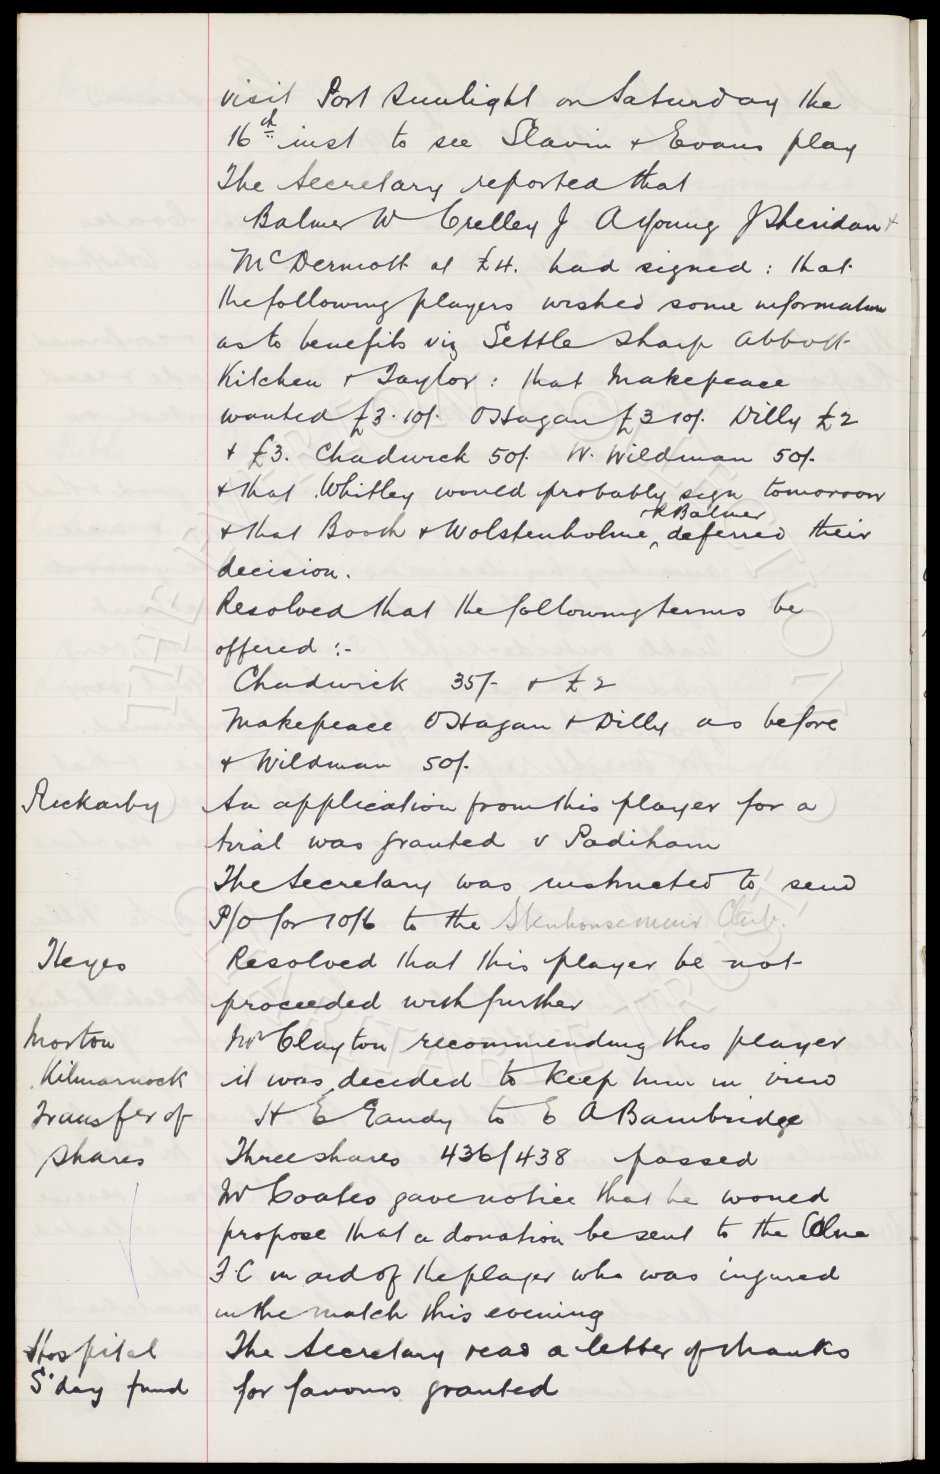 visit Port Sunlight on Saturday the
16th inst to see Slavin & Evans play
The Secretary reported that
Balmer W Crelley J A Young J Sheridan &
McDermott at £4. had signed: that
the following players wished some information
as to benefits viz Settle Sharp Abbott
Kitchen & Taylor: that Makepeace
wanted £3.10/. O'Hagan £3 10/. Dilly £2
& £3. Chadwick 50/. W. Wildman 50/.
& that Whitley would probably sign tomorrow
& R Balmer
& that Booth & Wolstenholme ‸ deferred their
decision.
Resolved that the following terms be
offered :-
Chadwick 35/- & £2
Makepeace O'Hagan & Dilly as before
& Wildman 50/.
Rickarby An application from this player for a
trial was granted v Padiham
The Secretary was instructed to send
P/O for 10/6 to the Stenhousemuir Club.
Keyes Resolved that this player be not
proceeded with further
Morton Mr Clayton recommending this player
Kilmarnock it was decided to keep him in view
Transfer of H E Gandy to E A Bambridge
shares Three shares 436/438 passed
Mr Coates gave notice that he would
propose that a donation be sent to the Colne
F.C in aid of the player who was injured
in the match this evening
Hospital The Secretary read a letter of thanks
S'day fund for favours granted